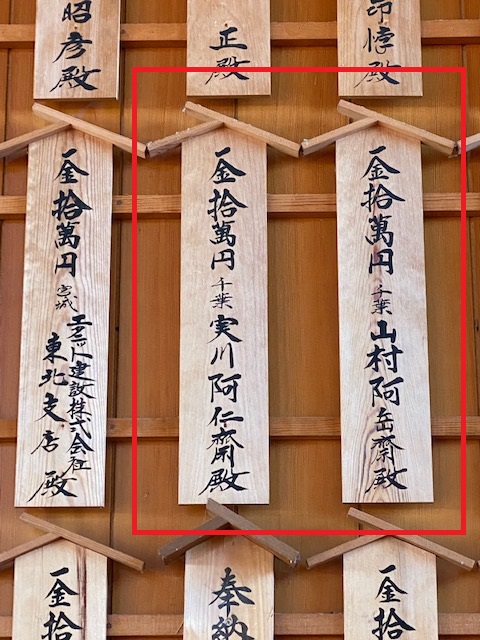 昂悖殿
正殿
昭彦殿
一金拾萬円 千葉 山村阿岳齋殿
一金拾萬円 千葉 実川阿仁齋殿
一金拾萬円 宮城 エクシト建設株式会社
東北支店殿
一金拾
奉納
一金拾